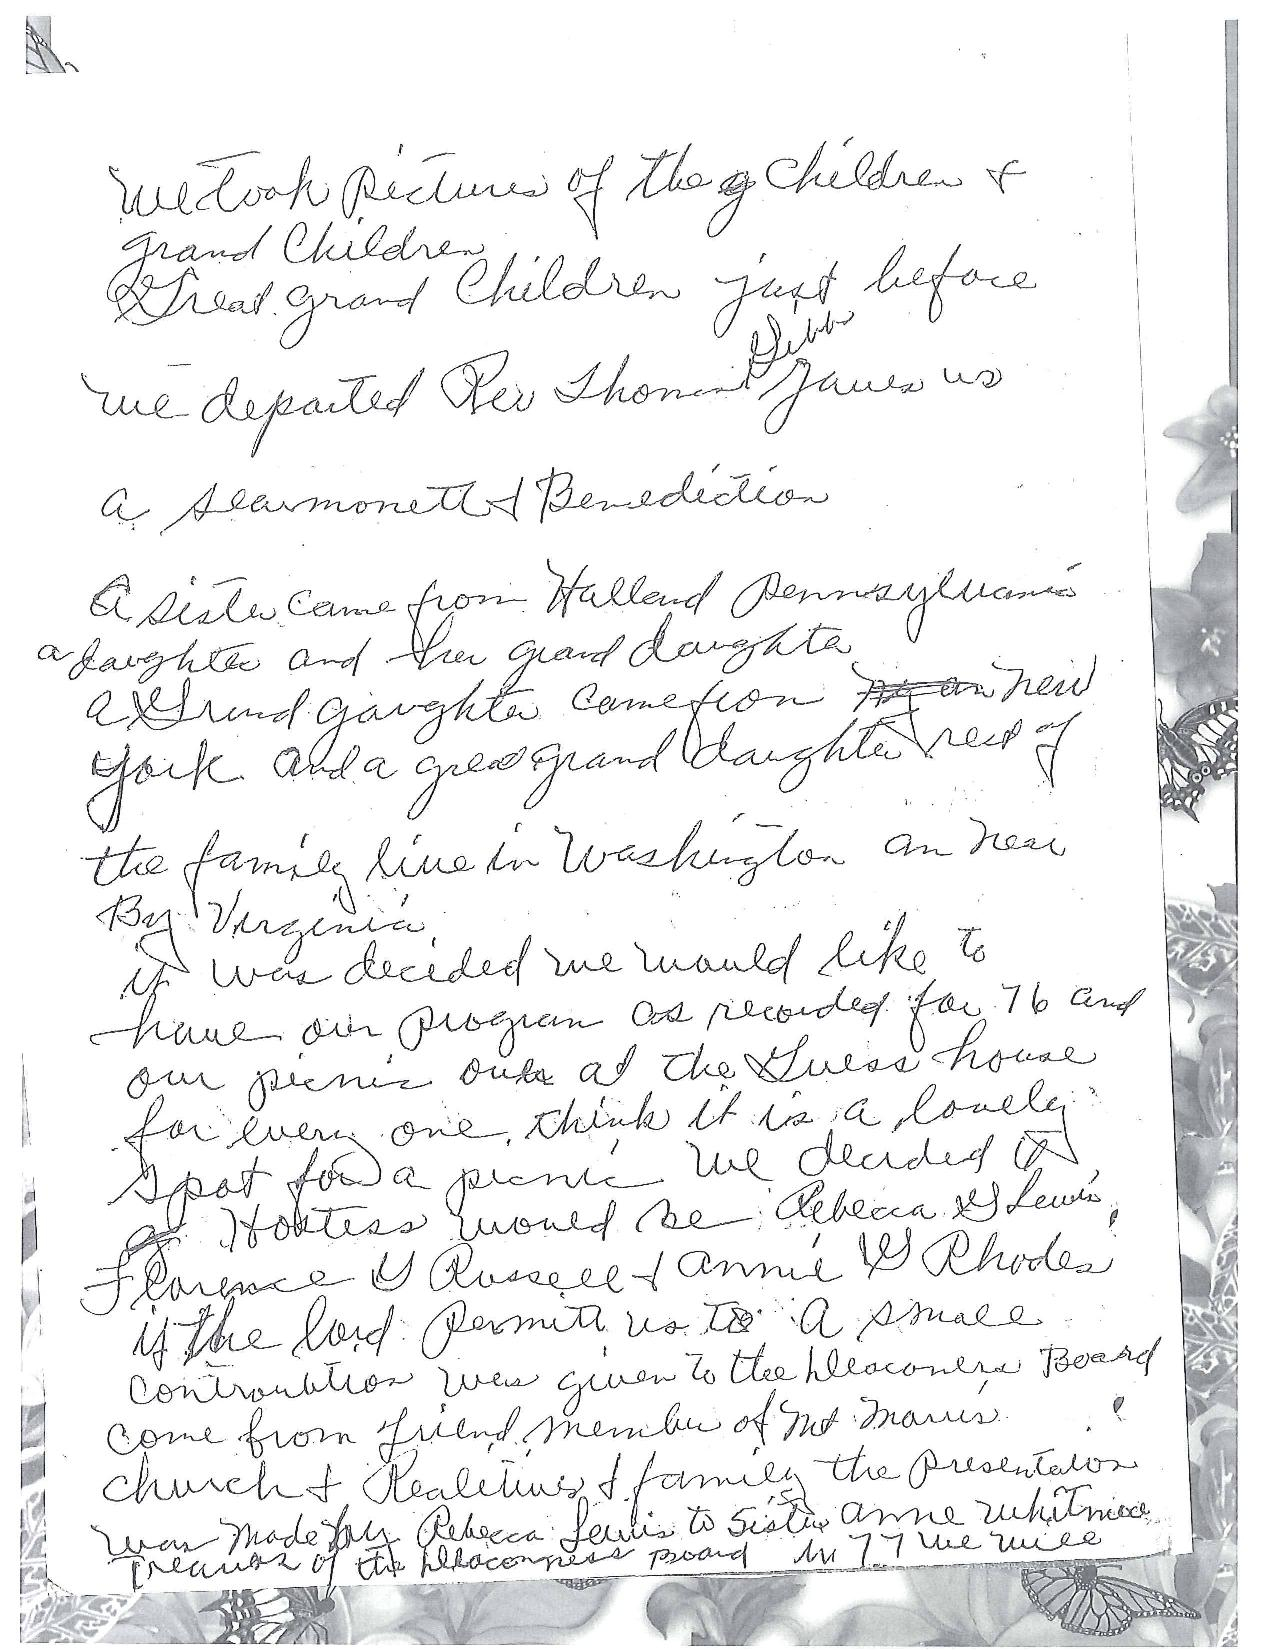 We took pictures of the Children &
grand Children
Great grand Children just before
we departed Rev Thomas Gibbs gaves us
a searmonett & Benediction
A sister came from Halland Pennsylvania
a daughter and her grand daughter
a Grand gaughter came from new
york and a great grand daughter rest of
the family live in Washington an near
By Virginia
it was decided we would like to
have our program as recorded for 76 and
our picnic out at the Guess house
for every one, think it is a lovely
spot for a picnic we decided
Hostess would be Rebecca G Lewis,
Florence G Russell & Annie G Rhodes
if the lord permitt us to A small
contrabution was given to the Deaconess Board
come from friend, member of Mt Marris
church & Realetives & family the presentation
was made by Rebecca Lewis to Sister Anne Whitmore
Treausr of the Deaconness Board in 77 we will